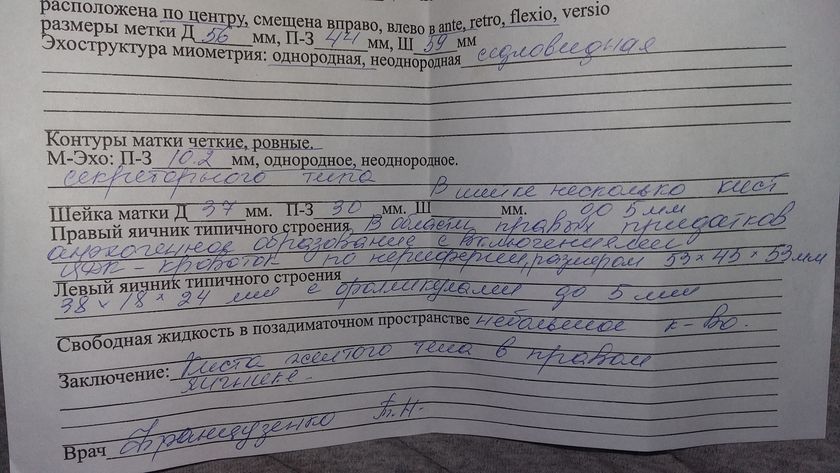 расположена по центру, смещена вправо, влево в ante, retro, flexio, versio
размеры метки Д 56 мм, П-З 44 мм, Ш 59 мм
Эхоструктура миометрия: однородная, неоднородная седловидная
Контуры матки четкие, ровные.
М-Эхо: П-З 10.2 мм, однородное, неоднородное.
секреторного типа В шейке несколько кист
Шейка матки Д 37 мм. П-З 30 мм. Ш мм. до 5 мм
Правый яичник типичного строения В области правых придатков
анэхогенное образование с включениями
ЦДК - кровоток по периферии, размером 53 × 45 × 53 мм
Левый яичник типичного строения
38 × 18 × 24 мм с фолликулами до 5 мм
Свободная жидкость в позадиматочном пространстве небольшое к-во.
Заключение: Киста желтого тела в правом
яичнике
Врач Французенко Т.Н.